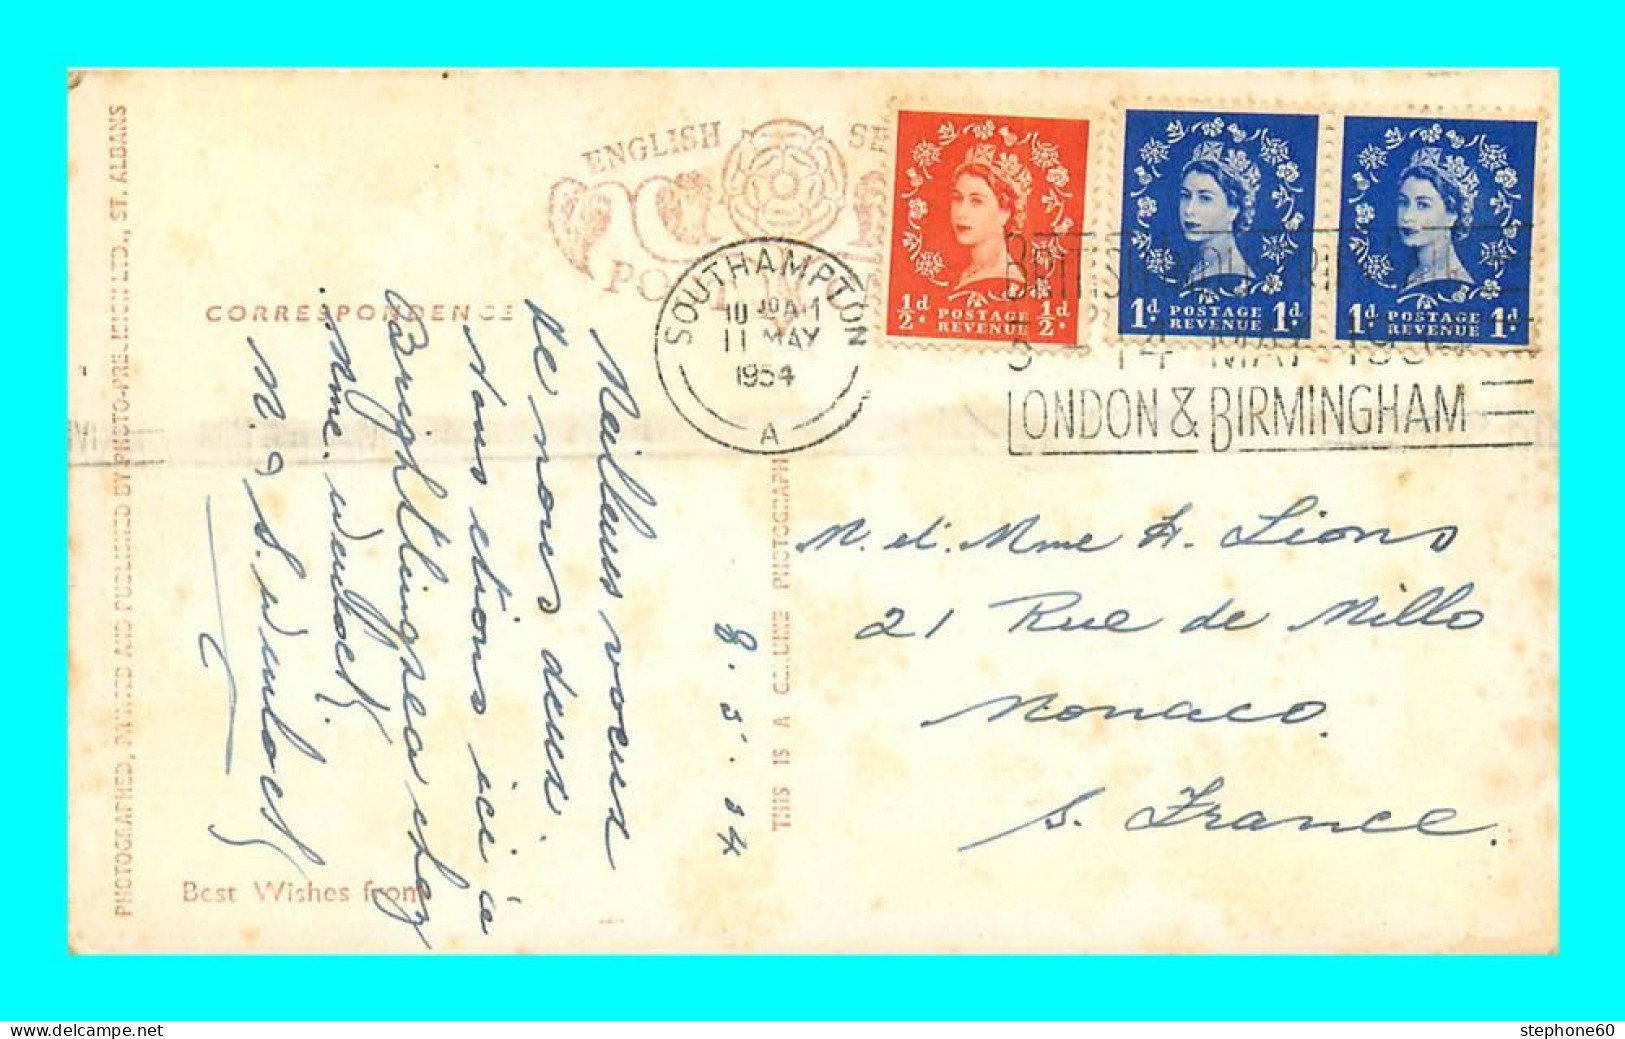 PHOTOGRAPHED, PRINTED AND PUBLISHED BY PHOTO-PRECISION LTD., ST. ALBANS
CORRESPONDENCE
ENGLISH SE
PO
SOUTHAMPTON
10 30 AM
11 MAY
1954
A
½d. POSTAGE REVENUE ½d.
1d. POSTAGE REVENUE 1d.
1d. POSTAGE REVENUE 1d.
BRITISH INDUSTRIES
3 - 14 MAY 1954
LONDON & BIRMINGHAM
8.5.54
Meilleurs voeux
de nous deux.
Nous etions ici a
Brightlingsea chez
Mme.
M. &
Best Wishes from
THIS IS A GENUINE PHOTOGRAPH
M. et. Mme H. Lions
21 Rue de Millo
Monaco.
S. France.
www.delcampe.net
stephone60